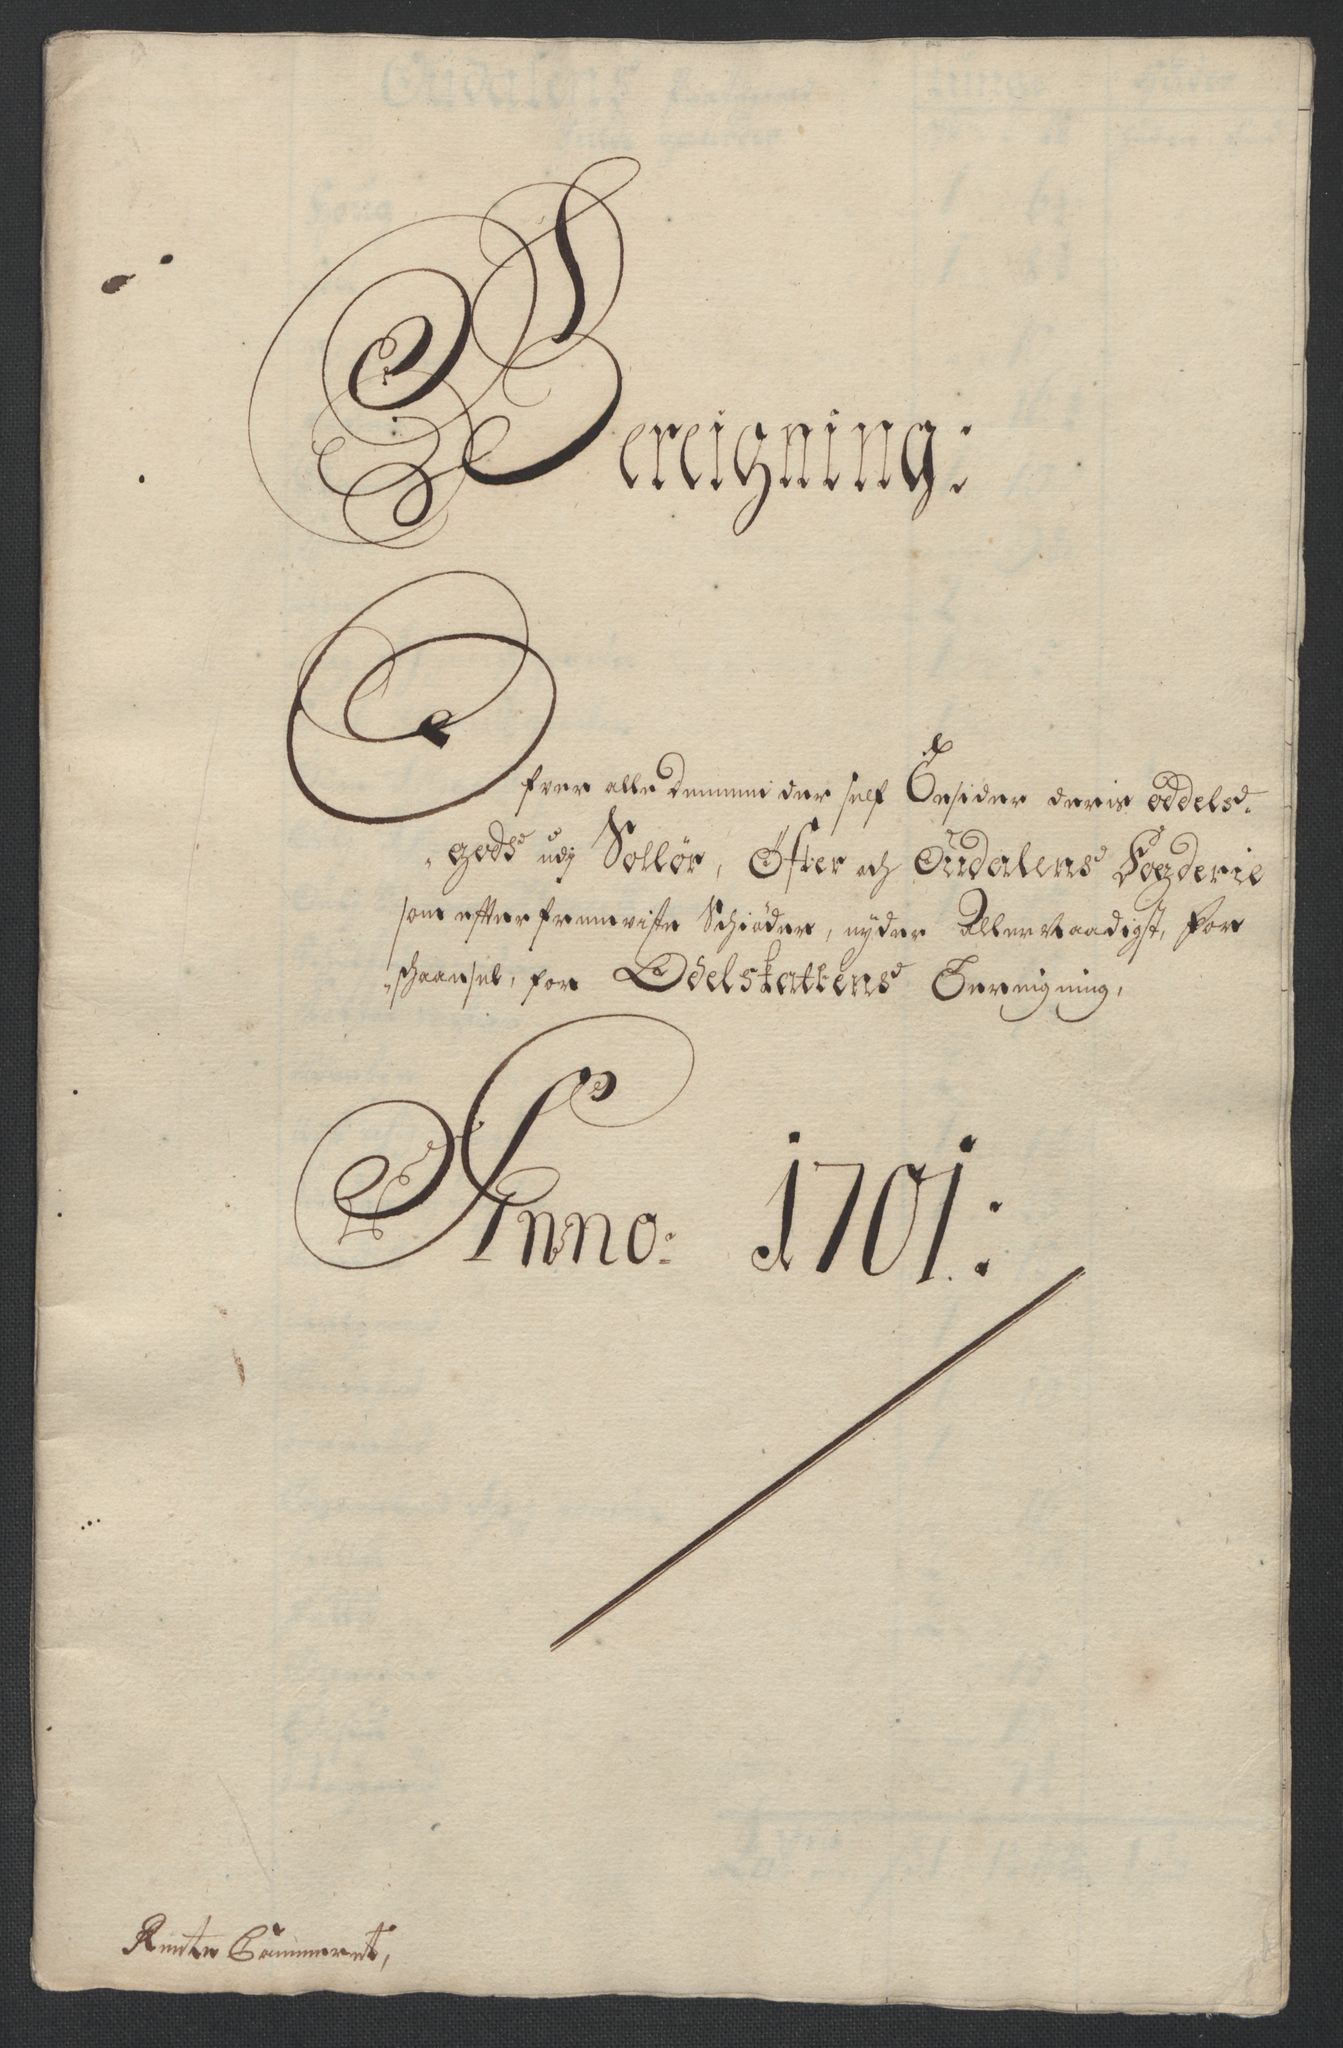 Bereigning:
Ofver alle dennem der self besider deris oddels-
gods udj Sollør, Øster och Oudalens Fogderie
som efter fremviste Schiøder, nyder Allernaadigst, for
schaansel, for Odelskattens bereigning,
Anno: 1701:
Rente Cammeret,